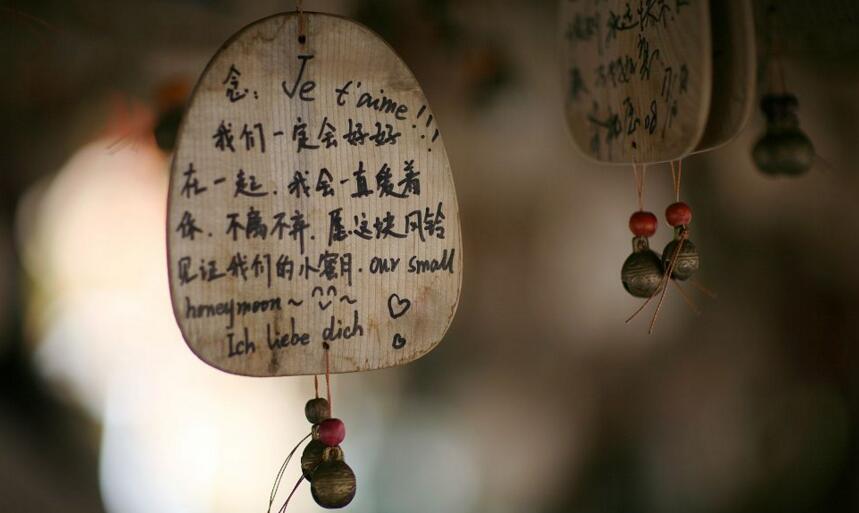 念: Je t'aime!!!
我们一定会好好
在一起. 我会一直爱着
你. 不离不弃. 愿这块风铃
见证我们的小蜜月. our small
honeymoon~ ~
Ich liebe dich